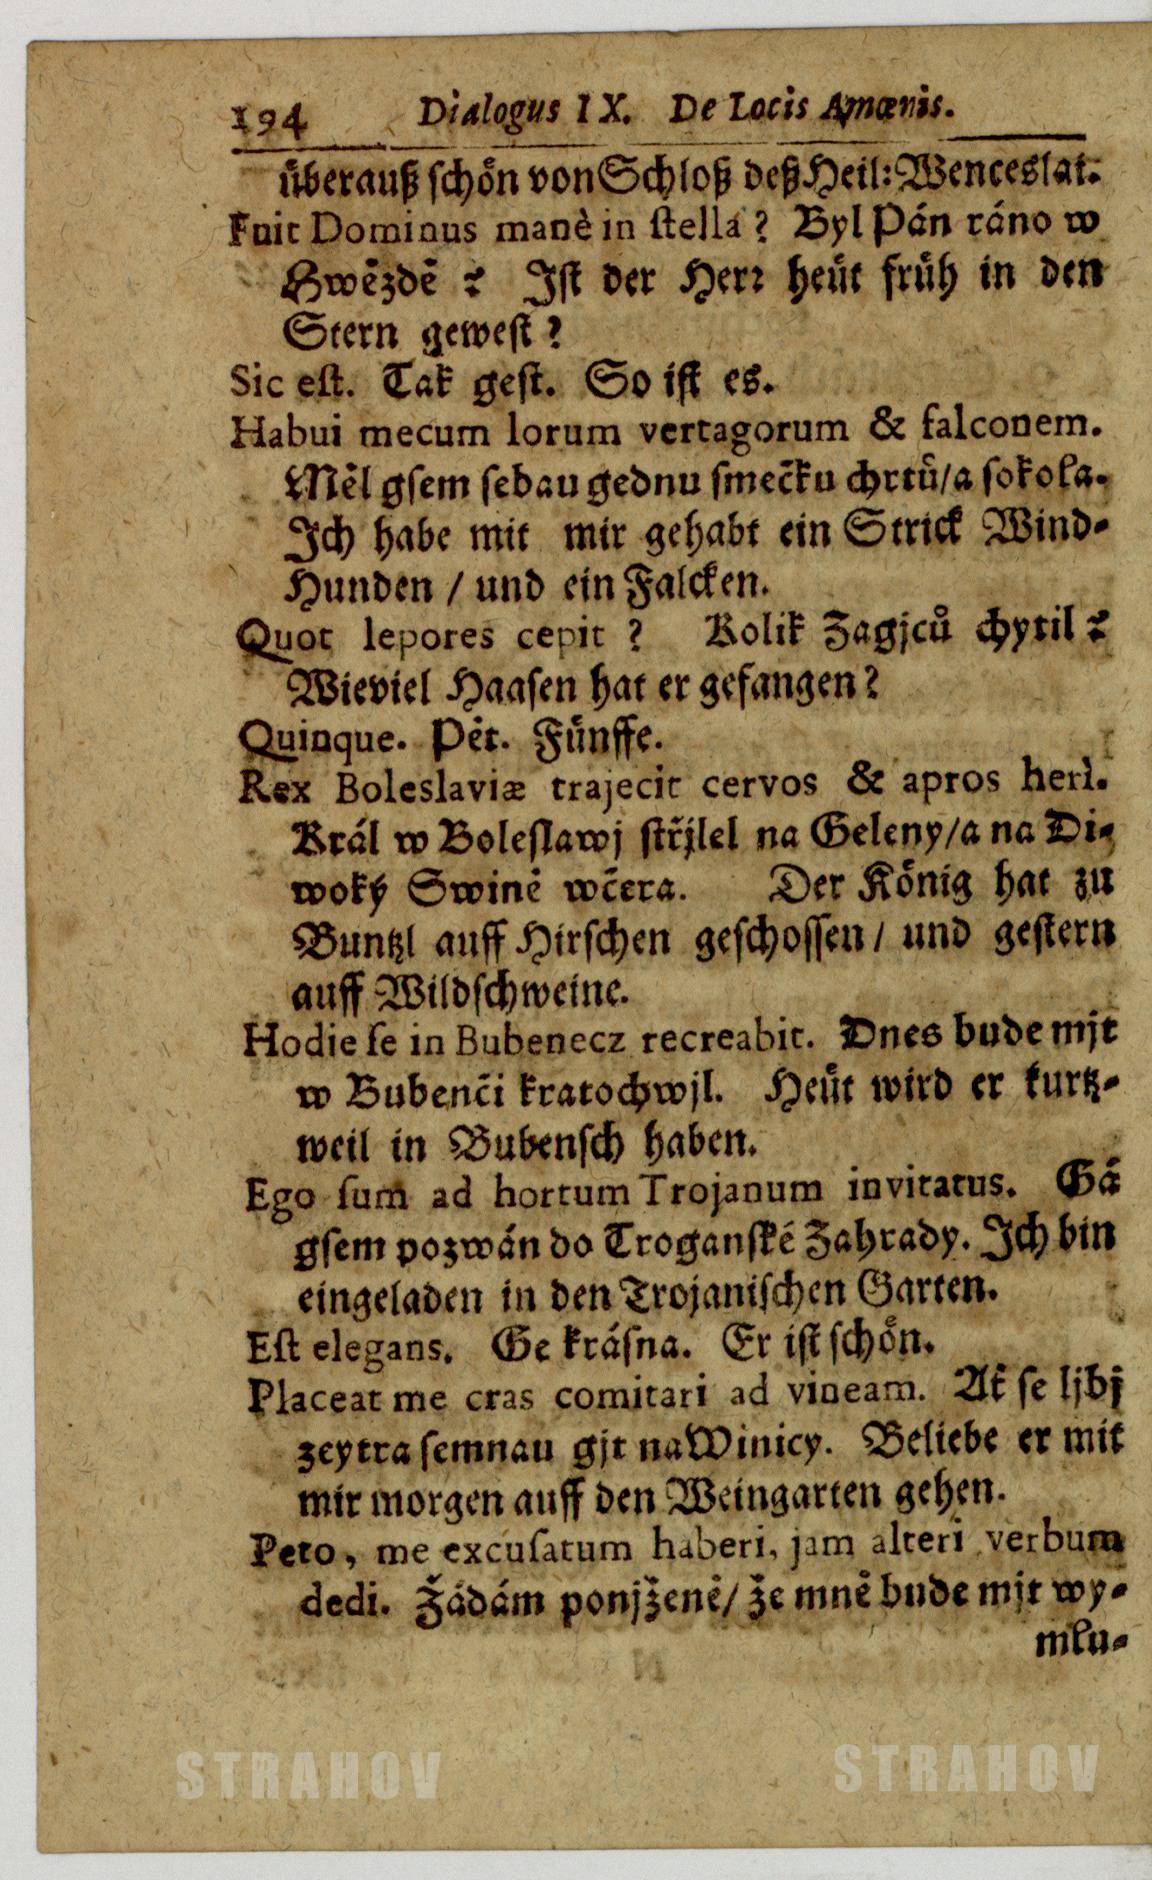 194 Dialogus IX. De Locis Amœnis.
überauß schön von Schloß deß Heil: Wenceslai.
Fuit Dominus manè in stella? Byl Pán ráno w
Hwězdě? Ist der Herr heüt früh in den
Stern gewest?
Sic est. Tak gest. So ist es.
Habui mecum lorum vertagorum & falconem.
Měl gsem sebau gednu smečku chrtů/a sokola.
Ich habe mit mir gehabt ein Strick Wind-
Hunden / und ein Falcken.
Quot lepores cepit? Kolik Zagjců chytil?
Wieviel Haasen hat er gefangen?
Quinque. Pět. Fünffe.
Rex Boleslaviæ trajecit cervos & apros herì.
Král w Boleslawj střjlel na Geleny/a na Di-
woký Swině wčera. Der König hat zu
Buntzl auff Hirschen geschossen / und gestern
auff Wildschweine.
Hodie se in Bubenecz recreabit. Dnes bude mjt
w Bubenči kratochwjl. Heüt wird er kurtz-
weil in Bubensch haben.
Ego sum ad hortum Trojanum invitatus. Gá
gsem pozwán do Troganské Zahrady. Ich bin
eingeladen in den Trojanischen Garten.
Est elegans. Ge krásna. Er ist schön.
Placeat me cras comitari ad vineam. Ať se ljbj
zeytra semnau gjt na Winicy. Beliebe er mit
mir morgen auff den Weingarten gehen.
Peto, me excusatum haberi, jam alteri verbum
dedi. Žádám ponjženě/ že mně bude mjt wy-
mlu-
STRAHOV STRAHOV